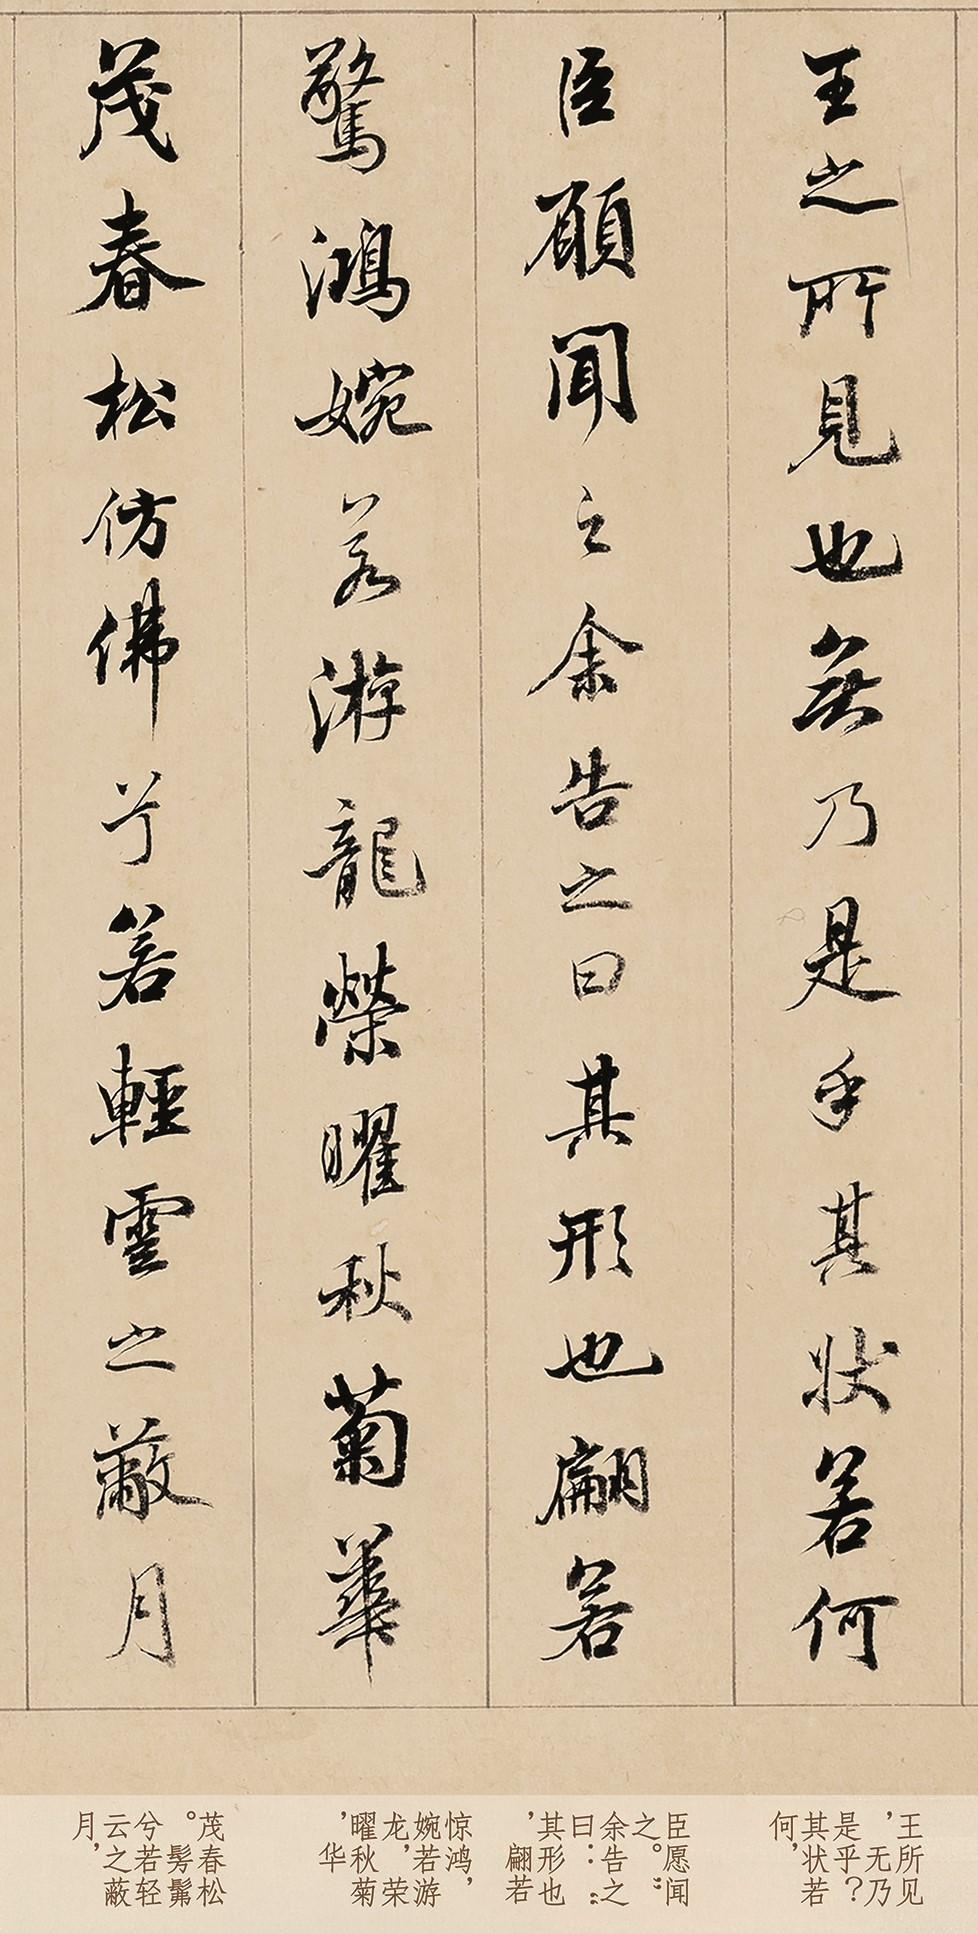 王之所見也無乃是乎其状若何
臣願聞之余告之曰其形也翩若
驚鴻婉若游龍榮曜秋菊華
茂春松仿佛兮若輕雲之蔽月
王所见
，无乃
是乎？
其状若
何，
臣愿闻
之。”
余告之
曰：“
其形也
，翩若
惊鸿，
婉若游
龙，荣
曜秋菊
，华
茂春松
。髣髴
兮若轻
云之蔽
月，